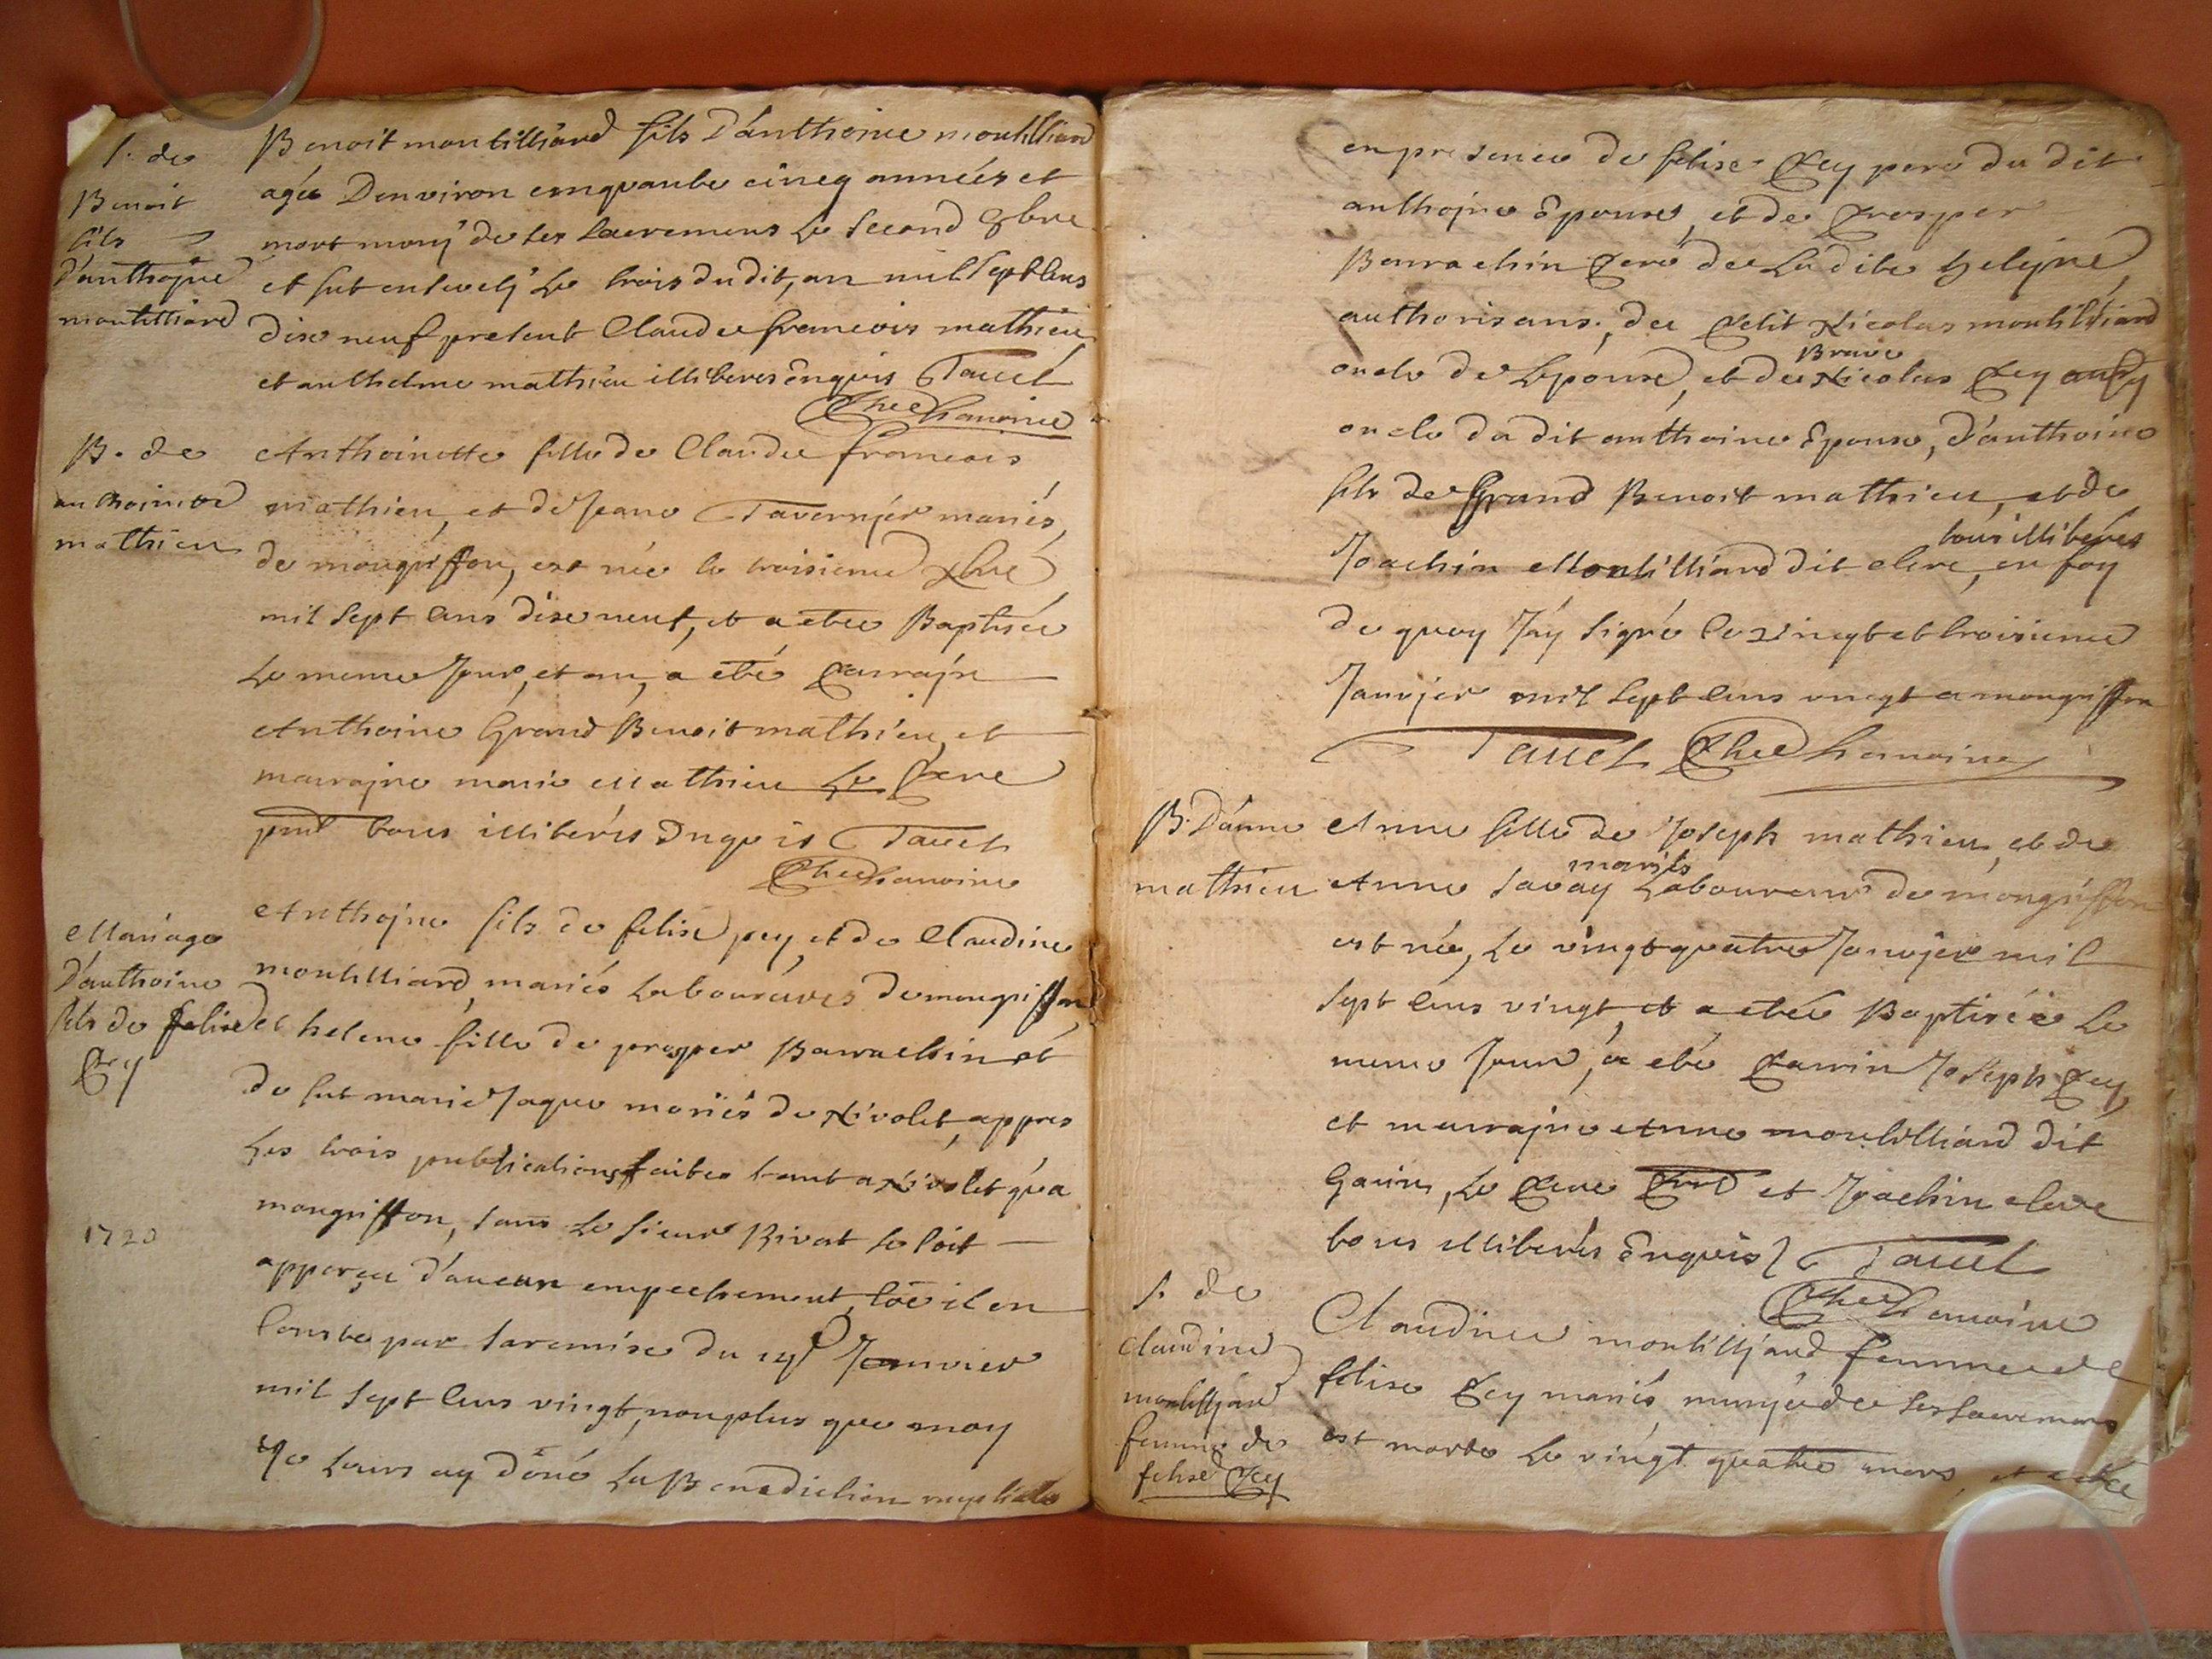 S. de
Benoit
fils
d'anthoine
montilliard
Benoit montilliard fils D'anthoine montilliard
agée Denviron cinquante cincq années et
mort mony de ses sacremens le second 9bre
et fut ensevely le trois du dit, an mil sept cens
dixe neuf present Claude francois mathieu
et anthelme mathieu illiterés enquis Tavel
Chanoine
B. de
anthoinette
mathieu
Anthoinette fille de Claude francois
mathieu, et de Jeane Tavernjér mariés,
de mongriffon, est née le troisieme xbre
mil sept cens dixe neuf, et a etee Baptisée
le meme Jour, et an, a eté Parrajn
Anthoine Grand Benoit mathieu, et
marrajne marie Mathieu le Pere
pnt tous illiterés Enquis Tavel
Chanoine
Mariage
D'anthoine
fils de felise
Pey
Anthojne fils de felise pey, et de Claudine
montilliard, mariés Laboureurs de mongriffon
et helene fille de prosper Bawrachin et
de fut marie Jaque mariés de Nivolet, appres
les trois publications faites tant a Nivolet qu'a
mongriffon, sans le sieur Rivat se soit
1720
apperçu d'aucun empechement, coe il en
Conste par sa remise du Janvier
mil sept cens vingt, nonplus que moy
Je leurs ay dôné la Benediction nuptialle
en presence de felise Pey pere du dit
anthojne Epoux, et de Prosper
Bawrachin Pere de la dite helejne
authorisans, de Petit Nicolas montilliard
oncle de L'epouse, et de Brave Nicolas Pey aussy
oncle du dit anthoine Epoux, D'anthoine
fils de Grand Benoit mathieu, et de
tous illiterés
Joachin Montilliard dit clere, en foy
de quoy J'ay signé le vingt et troisieme
Janvjer mil sept cens vingt a mongriffon
Tavel Chanoine
B. D'anne
mathieu
Anne fille de Joseph mathieu, et de
mariés
Anne Savay Laboureur de mongriffon
est née, le vingt quatre Janvjer mil
sept cens vingt, et a etée Baptisée le
meme Jour, a eté Parrin Joseph Pey
et marrajne Anne montilliard dit
Garin, le Pere Pnt et Joachin clere
tous illiterés Enquis Tavel
Chanoine
S. de
Claudine
montilljard
femme de
felise Pey
Claudine montilljard femme de
felise Pey mariés, munjée de ses sacremens
est morte le vingt quatre mars, et a etée